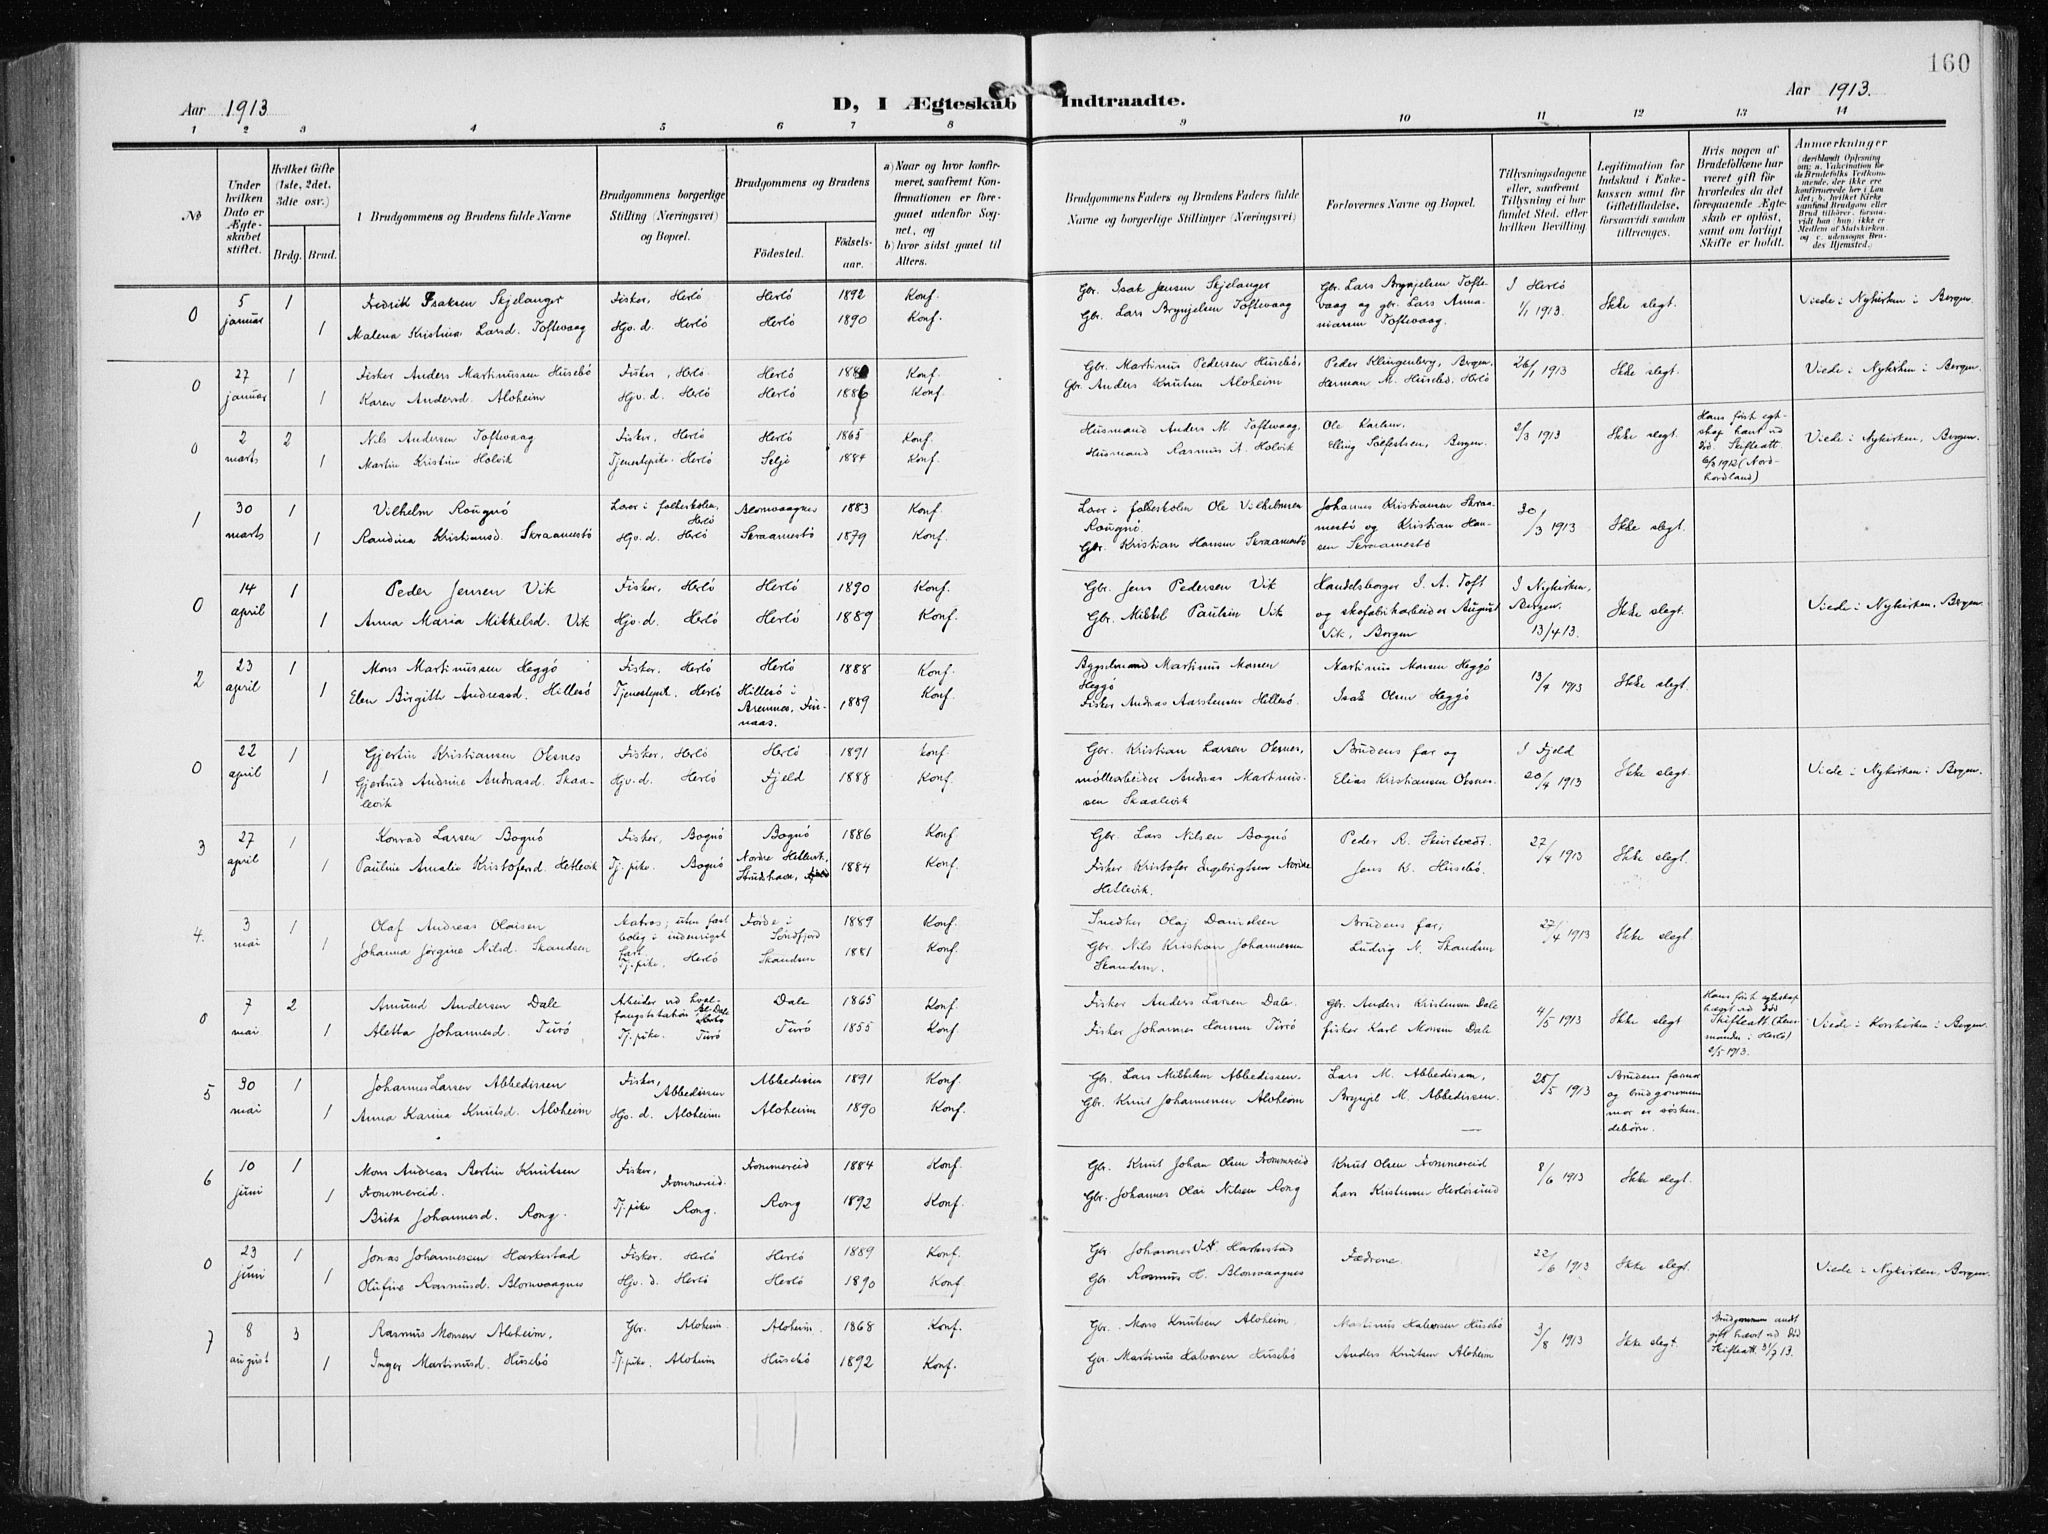 160
Aar 1913
D, I Ægteskab Indtraadte.
Aar 1913.
1 2 3 4 5 6 7 8 9 10 11 12 13 14
No
Under hvilken Dato er Ægteskabet stiftet.
Hvilket Gifte (1ste, 2det, 3die osv.)
Brdg. Brud.
1 Brudgommens og Brudens fulde Navne
Brudgommens borgerlige Stilling (Næringsvei) og Bopæl.
Brudgommens og Brudens
Fødested.
Fødselsaar.
a) Naar og hvor konfirmeret, saafremt Konfirmationen er foregaaet udenfor Sognet, og
b) hvor sidst gaaet til Alters.
Brudgommens Faders og Brudens Faders fulde Navne og borgerlige Stillinger (Næringsvei)
Forlovernes Navne og Bopæl.
Tillysningsdagene eller, saafremt Tillysning ei har fundet Sted, efter hvilken Bevilling
Legitimation for Indskud i Enkekassen samt for Giftetilladelse, forsaavidt saadan tiltrænges.
Hvis nogen af Brudefolkene har været gift før hvorledes da det foregaaende Ægteskab er opløst, samt om lovligt Skifte er holdt.
Anmærkninger
(deriblandt Oplysning om: a. Vakcination for de Brudefolks Vedkommende, der ikke ere konfirmerede her i Landet; b. hvilket Kirkesamfund Brudgom eller Brud tilhører, forsaavidt han hun. ikke er Medlem af Statskirken, og c. udensogns Brudes Hjemsted.)
0 5 januar 1 Fredrik Isaksen Skjelanger Fisker, Herlö Herlö 1892 Konf. Gbr. Isak Jensen Skjelanger Gbr. Lars Brynjelsen Toftevaag og gbr. Lars Annaniassen Toftevaag. I Herlö 1/1 1913. Ikke slegt. Viede i Nykirken i Bergen.
1 Malena Kristina Larsd. Toftevaag Hjv. d. Herlö Herlö 1890 Konf. Gbr. Lars Brynjelsen Toftevaag
0 27 januar 1 Fisker Anders Martinussen Husebö Fisker, Herlö Herlö Konf. Gbr. Martinus Pedersen Husebö, Peder Klingenberg, Bergen. 26/1 1913 Ikke slegt. Viede i Nykirken i Bergen.
1 Karen Andersd. Aloheim Hjv. d. Herlö Herlö 1886 Konf. Gbr. Anders Knutsen Aloheim Herman M. Husebö, Herlö
0 2 marts 2 Nils Andersen Toftevaag Fisker, Herlö Herlö 1865 Konf. Husmand Anders M. Toftevaag, Ole Karlsen, 2/3 1913 Ikke slegt. Hans först egtskap hævt ved död. Skifteatt. 6/3 1912 (Nordhordland) Viede i Nykirken, Bergen.
1 Martin Kristine Holvik Tjenestepike. Herlö Selje 1884 Konf. Husmand Rasmus A. Holvik Elling Solfestsen, Bergen.
1 30 marts 1 Vilhelm Rougnö Lærer i folkeskolen, Herlö Blomvaagnes 1883 Konf. Lærer i folkeskolen Ole Vilhelmsen Rougnö Johannes Kristiansen Skraamestö og Kristian Hansen Skraamestö 30/3 1913 Ikke slegt.
1 Randina Kristiansd. Skraamestö Hjv. d. Herlö Skraamestö 1879 Konf. Gbr. Kristian Hansen Skraamestö
0 14 april 1 Peder Jensen Vik Fisker, Herlö Herlö 1890 Konf. Gbr. Jens Pedersen Vik Handelsborger I. A. Toft og skofabrikarbeider August Vik, Bergen I Nykirken, Bergen. 13/4 13. Ikke slegt. Viede i Nykirken, Bergen.
1 Anna Maria Mikkelsd. Vik Hjv. d. Herlö Herlö 1889 Konf. Gbr. Mikkel Paulsen Vik
2 23 april 1 Mons Martinussen Heggö Fisker, Herlö Herlö 1888 Konf. Bygselmand Martinus Monsen Heggö Martinus Monsen Heggö 13/4 1913 Ikke slegt.
1 Elen Birgitte Andreasd. Hillesö Tjenestepik. Herlö Hillesö i Bremnes, Finnaas. 1889 Konf. Fisker Andreas Aarstensen Hillesö. Isak Olsen Heggö
0 22 april 1 Gjertin Kristiansen Oksnes Fisker, Herlö Herlö 1891 Konf. Gbr. Kristian Larsen Oksnes, Brudens far og I Fjeld 20/4 1913 Ikke slegt. Viede i Nykirken i Bergen.
1 Gjertrud Andrine Andreasd. Skaalevik Hjv. d. Herlö Fjeld 1888 Konf. møllearbeider Andreas Martinussen Skaalevik Elias Kristiansen Oksnes.
3 27 april 1 Konrad Larsen Bognö Fisker, Bognö Bognö 1886 Konf. Gbr. Lars Nilsen Bognö Peder R. 27/4 1913 Ikke slegt.
1 Pauline Amalie Kristofersd. Hetlevik Tj. pike. Bognö Nordre Hetlevik, 1884 Konf. Fisker Kristofer Ingebrigtsen Nordre Hetlevik. Jens K. Husebö.
4. 3 mai 1 Olaf Andreas Olaisen Matros; uten fast bolig i indenriget fart Förde i Söndfjord 1889 Konf. Snedker Olaj Danielsen Brudens far, 27/4 1913 Ikke slegt.
1 Johanna Jörgine Nilsd. Skandsen Tj. pike, Herlö Skandsen 1881 Konf. Gbr. Nils Kristian Johannessen Skandsen. Ludvig N. Skandsen
0 7 mai 2 Amund Andersen Dale Arbeider ved hvalfangststation Dale 1865 Konf. Fisker Anders Larsen Dale. Gbr. Anders Kristensen Dale 4/5 1913 Ikke slegt Hans först egteskap hævet ved död Skifteatt (Lensmanden i Herlö) 2/5 1913. Viede i Korskirken i Bergen.
1 Aletta Johannesd. Turö Tj. pike. Turö Turö 1855 Konf. Fisker Johannes Hansen Turö fisker Karl Monsen Dale
5 30 mai 1 Johannes Larsen Abbedissen Fisker, Abbedissen Abbedissen 1891 Konf. Gbr. Lars Mikkelsen Abbedissen. Lars M. Abbedissen, 25/5 1913 Brudens farmor og brudgommens mor er söskendebörn.
1 Anna Karina Knutsd. Aloheim Hjv. d. Aloheim Aloheim 1890 Konf. Gbr. Knut Johannesen Aloheim Brynjel M. Abbedissen.
6 10 juni 1 Mons Andreas Bertin Knutsen Frommereid. Fisker, Frommereid. Frommereid 1884 Konf. Gbr. Knut Johan Olsen Frommereid Knut Olsen Frommereid 8/6 1913 Ikke slegt.
1 Brita Johannesd. Rong. Tj. pike Rong. Rong 1892 Konf. Gbr. Johannes Olai Nilsen Rong Lars Kristensen Herlösund
0 23 juni 1 Jonas Johannessen Harkestad Fisker. Herlö Herlö 1889 Konf. Gbr Johannes Harkestad Fædrene. 22/6 1913 Ikke slegt. Viede i Nykirken, Bergen.
1 Olufine Rasmusd. Blomvaagnes Hjv. d. Herlö Herlö 1890 Konf. Gbr. Rasmus H. Blomvaagnes
7 8 august 3 Rasmus Monsen Aloheim, Gbr. Aloheim. Aloheim. 1868 Konf. Gbr. Mons Knutsen Aloheim Martinus Halvorsen Husebö 3/8 1913 Ikke slegt. Brudgommens andt gift hævet ved död Skifteatt. 31/7 13.
1 Inger Martinusd. Husebö Tj. pike. Aloheim Husebö 1892 Konf. Gbr. Martinus Halvorsen Husebö Anders Knutsen Aloheim